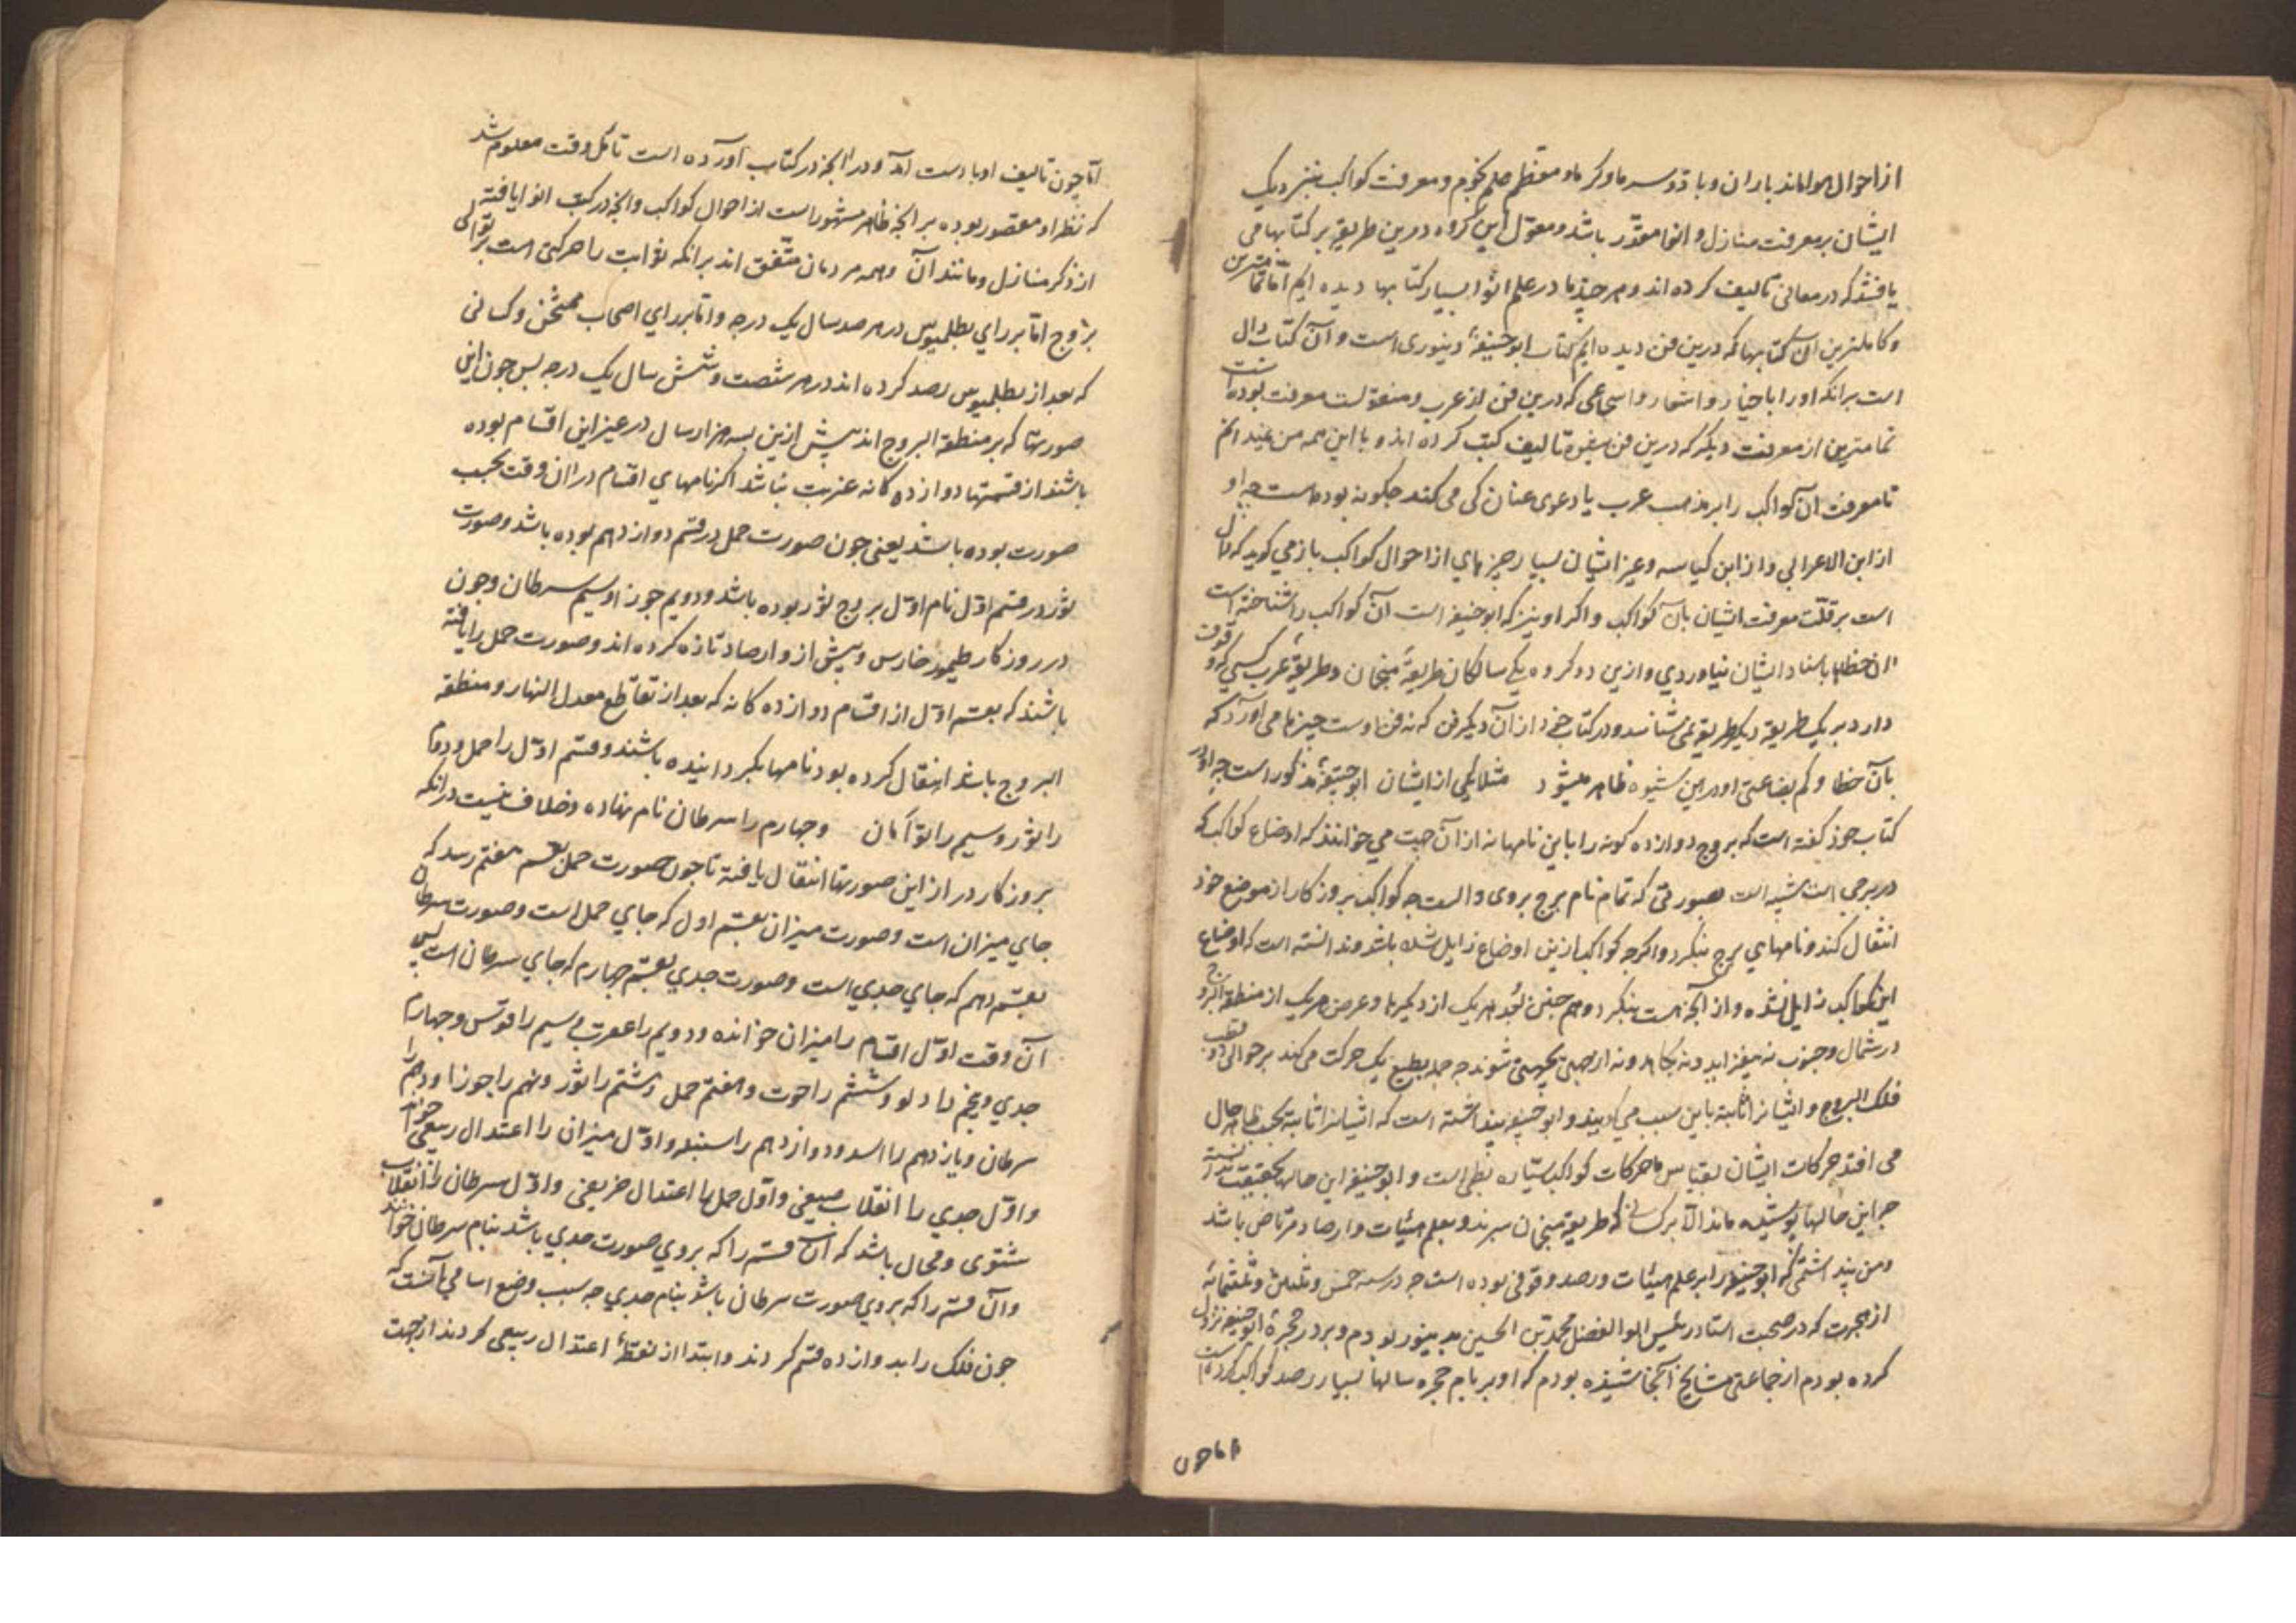 از احوال هوا مانند باران و باد و سرما و گرما و معظم علم نجوم و معرفت کواکب بنزدیک
ایشان بر معرفت منازل و انوا مقدّر باشد و معوّل این گروه درین طریق بر کتابها می
یافتند که در معانی تالیف کرده اند و هر چند ما در علم انوا بسیار کتابها دیده ایم امّا تمامترین
و کاملترین آن کتابها که درین فن دیده ایم کتاب ابو حنیفهٔ دینوری است و آن کتاب دال
است برانکه او را باخبار و اشعار و اسجاعی که درین فن از عرب و منقولست معرفت بوده است
تمامترین از معرفت دیگر که درین فن تالیف کتب کرده اند و با این همه من نمیدانم
تا معرفت آن کواکب را بر مذهب عرب یا دعوی عیان کی می کند چکونه بوده است چه او
از ابن الاعرابی و از ابن کناسه و غیر ایشان بسیار چیزهای از احوال کواکب باز می کوید که دال
است بر قلّت معرفت ایشان بآن کواکب و اکر او نیز که ابو حنیفه است آن کواکب را شناخته است
ان خطا باسناد ایشان نیاوردی و ازین دو کروه یکی سالکان طریقهٔ منجمان و طریقهٔ عرب کسی که وقوف
دارد بر یک طریقه دیکر طریقه نمی شناسد و در کتاب خود از آن دیکر فن که نه فن اوست چیزها می آورد که
بآن خطا و کم بضاعتی او درین شیوه ظاهر میشود مثلا یکی از ایشان ابو حنیفهٔ مذکور است چه او در
کتاب خود کفته است که بروج دوازده کونه را باین نامها نه از آن جهت می خوانند که اوضاع کواکب که
در برجی است شبیه است بصورتی که تمام نام برج بروی دالست چه کواکب بروزکار از موضع خود
انتقال کند و نامهای برج نکردد و اکرچه کواکب ازین اوضاع زایل شده باشد و ندانسته است که اوضاع
این کواکب زایل نشده و از آنچه هست بنکردد و هم چنین بُعد هر یک از دیکرها و عرض هر یک از منطقة البروج
در شمال و جنوب نه میفزاید و نه بکاهد و نه از جهتی بجهتی شوند چه جمله بطبع یک حرکت می کند بر حوالی دو قطب
فلک البروج و ایشانرا ثابته باین سبب می کویند و ابو حنیفه پنداشته است که ایشانرا ثابته بحسب ظاهر حال
می افتد حرکات ایشان بقیاس با حرکات کواکب سیّاره بطی است و ابو حنیفه این حالها بحقیقت ندانسته
جز این حالها پوشیده ماند الّا بر کسانی که طریقه منجمان سپرند و بعلم هیئات و ارصاد مرتاض باشد
و من پنداشتمی که ابو حنیفه را بر علم هیئات و رصد وقوفی بوده است چه در سنه خمس و ثلثین و ثلثمائه
از هجرت که در صحبت استاد رئیس ابو الفضل محمد بن الحسین به دینور بودم و بر در حجرهٔ ابو حنیفه نزول
کرده بودم از جماعتی مشایخ آنجا شنیده بودم که او بر بام حجره سالها بسیار رصد کواکب کرده است
اما چون
امّا چون تالیف او با دست آمد و در آنچه در کتاب آورده است تامّل وقت معلوم شد
که نظر او مقصور بوده بر آنچه ظاهر مشهور است از احوال کواکب و آنچه در کتب انوا یافته
از ذکر منازل و مانند آن و همه مردمان متّفق اند برانکه ثوابت را حرکتی است بر توالی
بروج امّا بر رای بطلمیوس در هر صد سال یک درجه و امّا بر رای اصحاب ممتحن و کسانی
که بعد از بطلمیوس رصد کرده اند در هر شصت و شش سال یک درجه پس چون این
صورتها که بر منطقة البروج اند پیش ازین بسه هزار سال در غیر این اقسام بوده
باشند از قسمتها دوازده کانه غریب نباشد اکر نامهای اقسام در ان وقت بحسب
صورت بوده باشد یعنی چون صورت حمل در قسم دوازدهم بوده باشد و صورت
ثور در قسم اوّل نام اوّل بروج ثور بوده باشد و دویم جوزا و سیم سرطان و چون
در روزکار طیموخارس و پیش از و ارصاد تازه کرده اند و صورت حمل را یافته
باشند که بقسم اوّل از اقسام دوازده کانه که بعد از تقاطع معدل النهار و منطقه
البروج باشد انتقال کرده بود نامها بکردانیده باشند و قسم اوّل را حمل و دوم
را ثور و سیم را توأمان و چهارم را سرطان نام نهاده و خلاف نیست در آنکه
بروزکار دراز این صورتها انتقال یافته تا چون صورت حمل بقسم هفتم رسد که
جای میزان است و صورت میزان بقسم اول که جای حمل است و صورت سرطان
بقسم دهم که جای جدی است و صورت جدی بقسم چهارم که جای سرطان است پس
آن وقت اوّل اقسام را میزان خوانده و دویم را عقرب و سیم را قوس و چهارم
جدی و پنجم را دلو و ششم را حوت و هفتم حمل و هشتم را ثور و نهم را جوزا و دهم را
سرطان و یازدهم را اسد و دوازدهم را سنبله و اوّل میزان را اعتدال ربیعی خوانند
و اوّل جدی را انقلاب صیفی و اوّل حمل را اعتدال خریفی و اوّل سرطان را انقلاب
شتوی و محال باشد که آن قسم را که بروی صورت جدی باشد بنام سرطان خوانند
و آن قسم را که بروی صورت سرطان باشد بنام جدی چه سبب وضع اسامی آنست که
چون فلک را بدوازده قسم کردند و ابتدا از نقطهٔ اعتدال ربیعی کردند از جهت